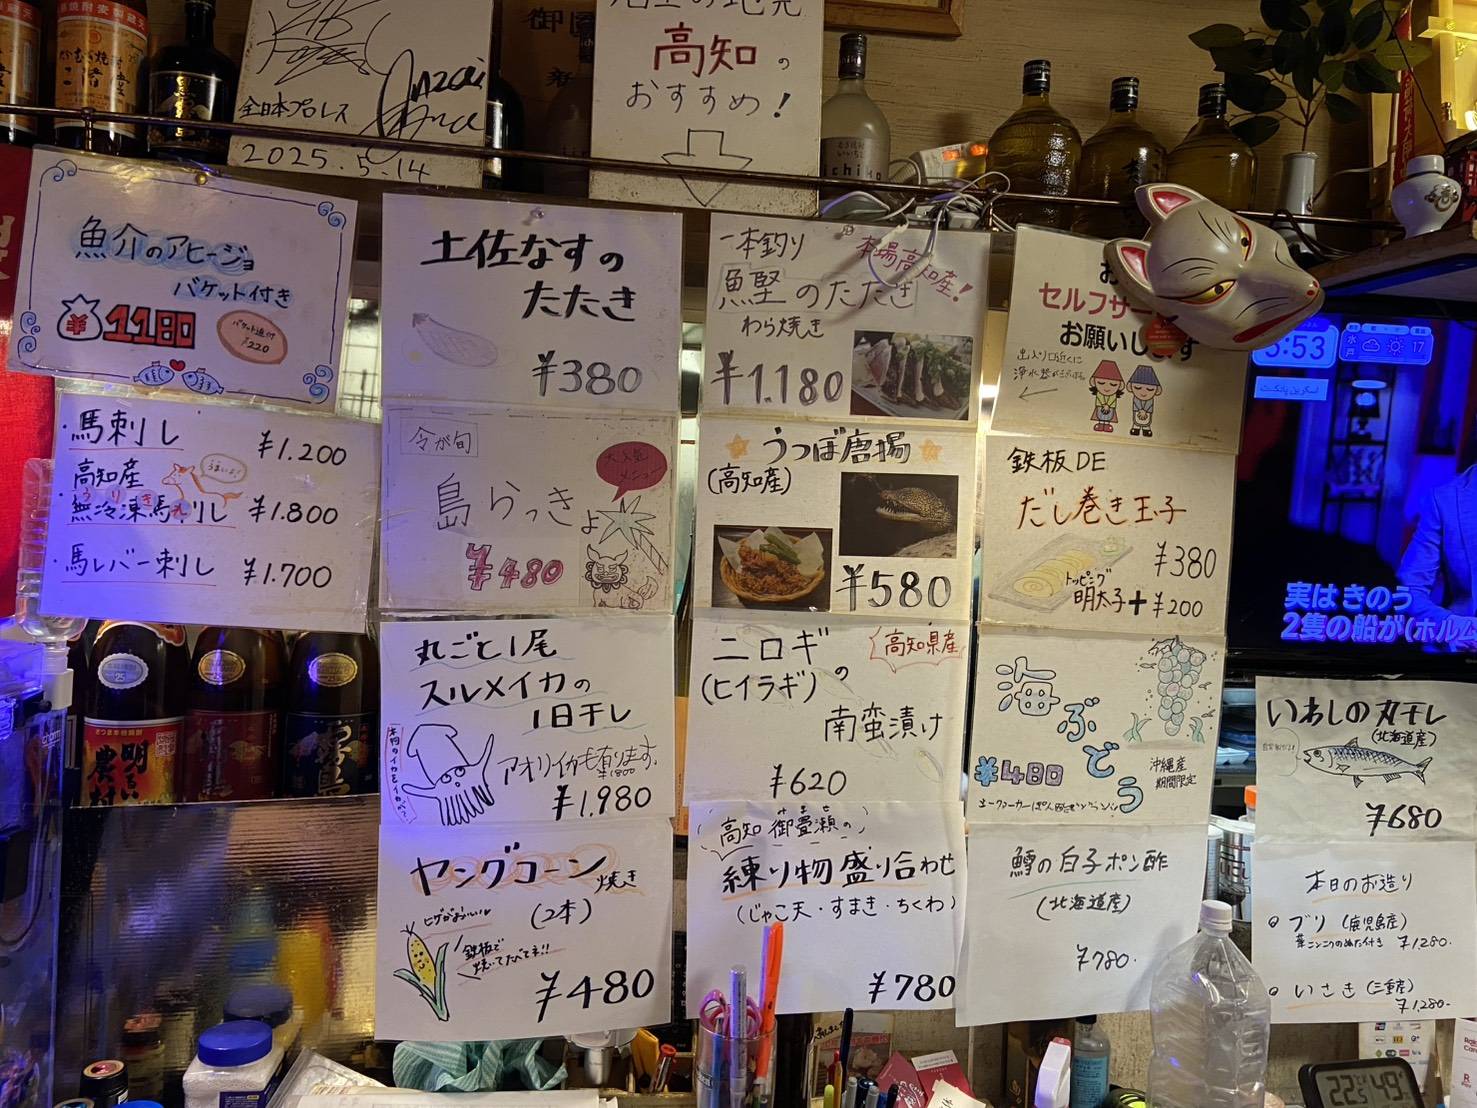 全日本プロレス
2025.5.14
高知の
おすすめ!
魚介のアヒージョ
バケット付き
¥1180
バケット追加
¥220
土佐なすの
たたき
¥380
一本釣り
本場高知産!
鰹のたたき
わら焼き
¥1.180
セルフサー
お願いします
出入り口近くに
馬刺し ¥1.200
高知産
うまいよ
無冷凍馬刺し ¥1.800
馬レバー刺し ¥1.700
今が旬
大人気
メニュー
島らっきょ
¥480
うつぼ唐揚
(高知産)
¥580
鉄板DE
だし巻き玉子
¥380
トッピング
明太子+¥200
丸ごと1尾
スルメイカの
1日干し
アオリイカも有ります。
¥1800
¥1.980
ニロギの
(ヒイラギ)
高知県産
南蛮漬け
¥620
海ぶどう
¥480
沖縄産
期間限定
いわしの丸干し
(北海道産)
¥680
ヤングコーン焼き
(2本)
ヒゲがおいしい
鉄板で
焼いてたべてネ!!
¥480
高知 御畳瀬の
練り物盛り合わせ
(じゃこ天・すまき・ちくわ)
¥780
鱈の白子ポン酢
(北海道産)
¥780.
本日のお造り
ブリ (鹿児島産)
¥1,280.
いさき (三重産)
¥1,280-
5:53
水戸
17
実はきのう
2隻の船が(ホルム
明るい
農村
25
22.5
49